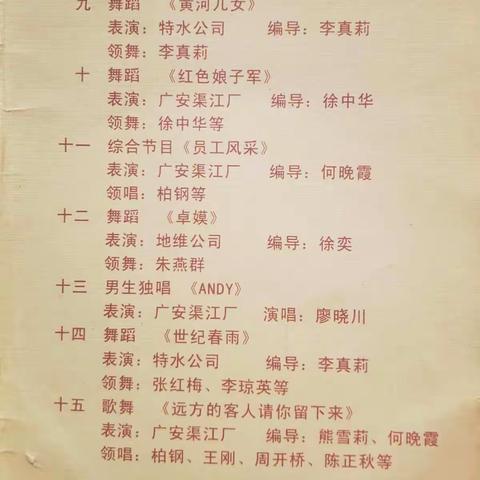 九 舞蹈 《黄河儿女》
表演：特水公司 编导：李真莉
领舞：李真莉
十 舞蹈 《红色娘子军》
表演：广安渠江厂 编导：徐中华
领舞：徐中华等
十一 综合节目《员工风采》
表演：广安渠江厂 编导：何晚霞
领唱：柏钢等
十二 舞蹈 《卓嫫》
表演：地维公司 编导：徐奕
领舞：朱燕群
十三 男生独唱 《ANDY》
表演：广安渠江厂 演唱：廖晓川
十四 舞蹈 《世纪春雨》
表演：特水公司 编导：李真莉
领舞：张红梅、李琼英等
十五 歌舞 《远方的客人请你留下来》
表演：广安渠江厂 编导：熊雪莉、何晚霞
领唱：柏钢、王刚、周开桥、陈正秋等